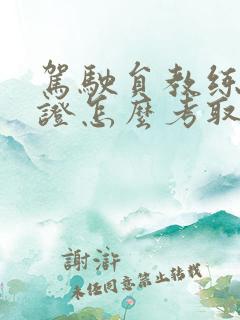 駕駛員教練
證怎麼考取
謝滸
未經同意禁止轉載